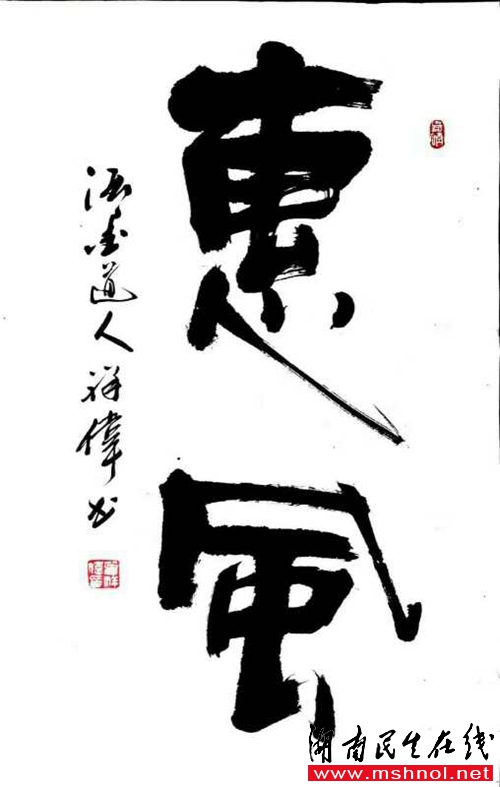 惠風
道人祥偉书
湖南民生在线
www.mshnol.net